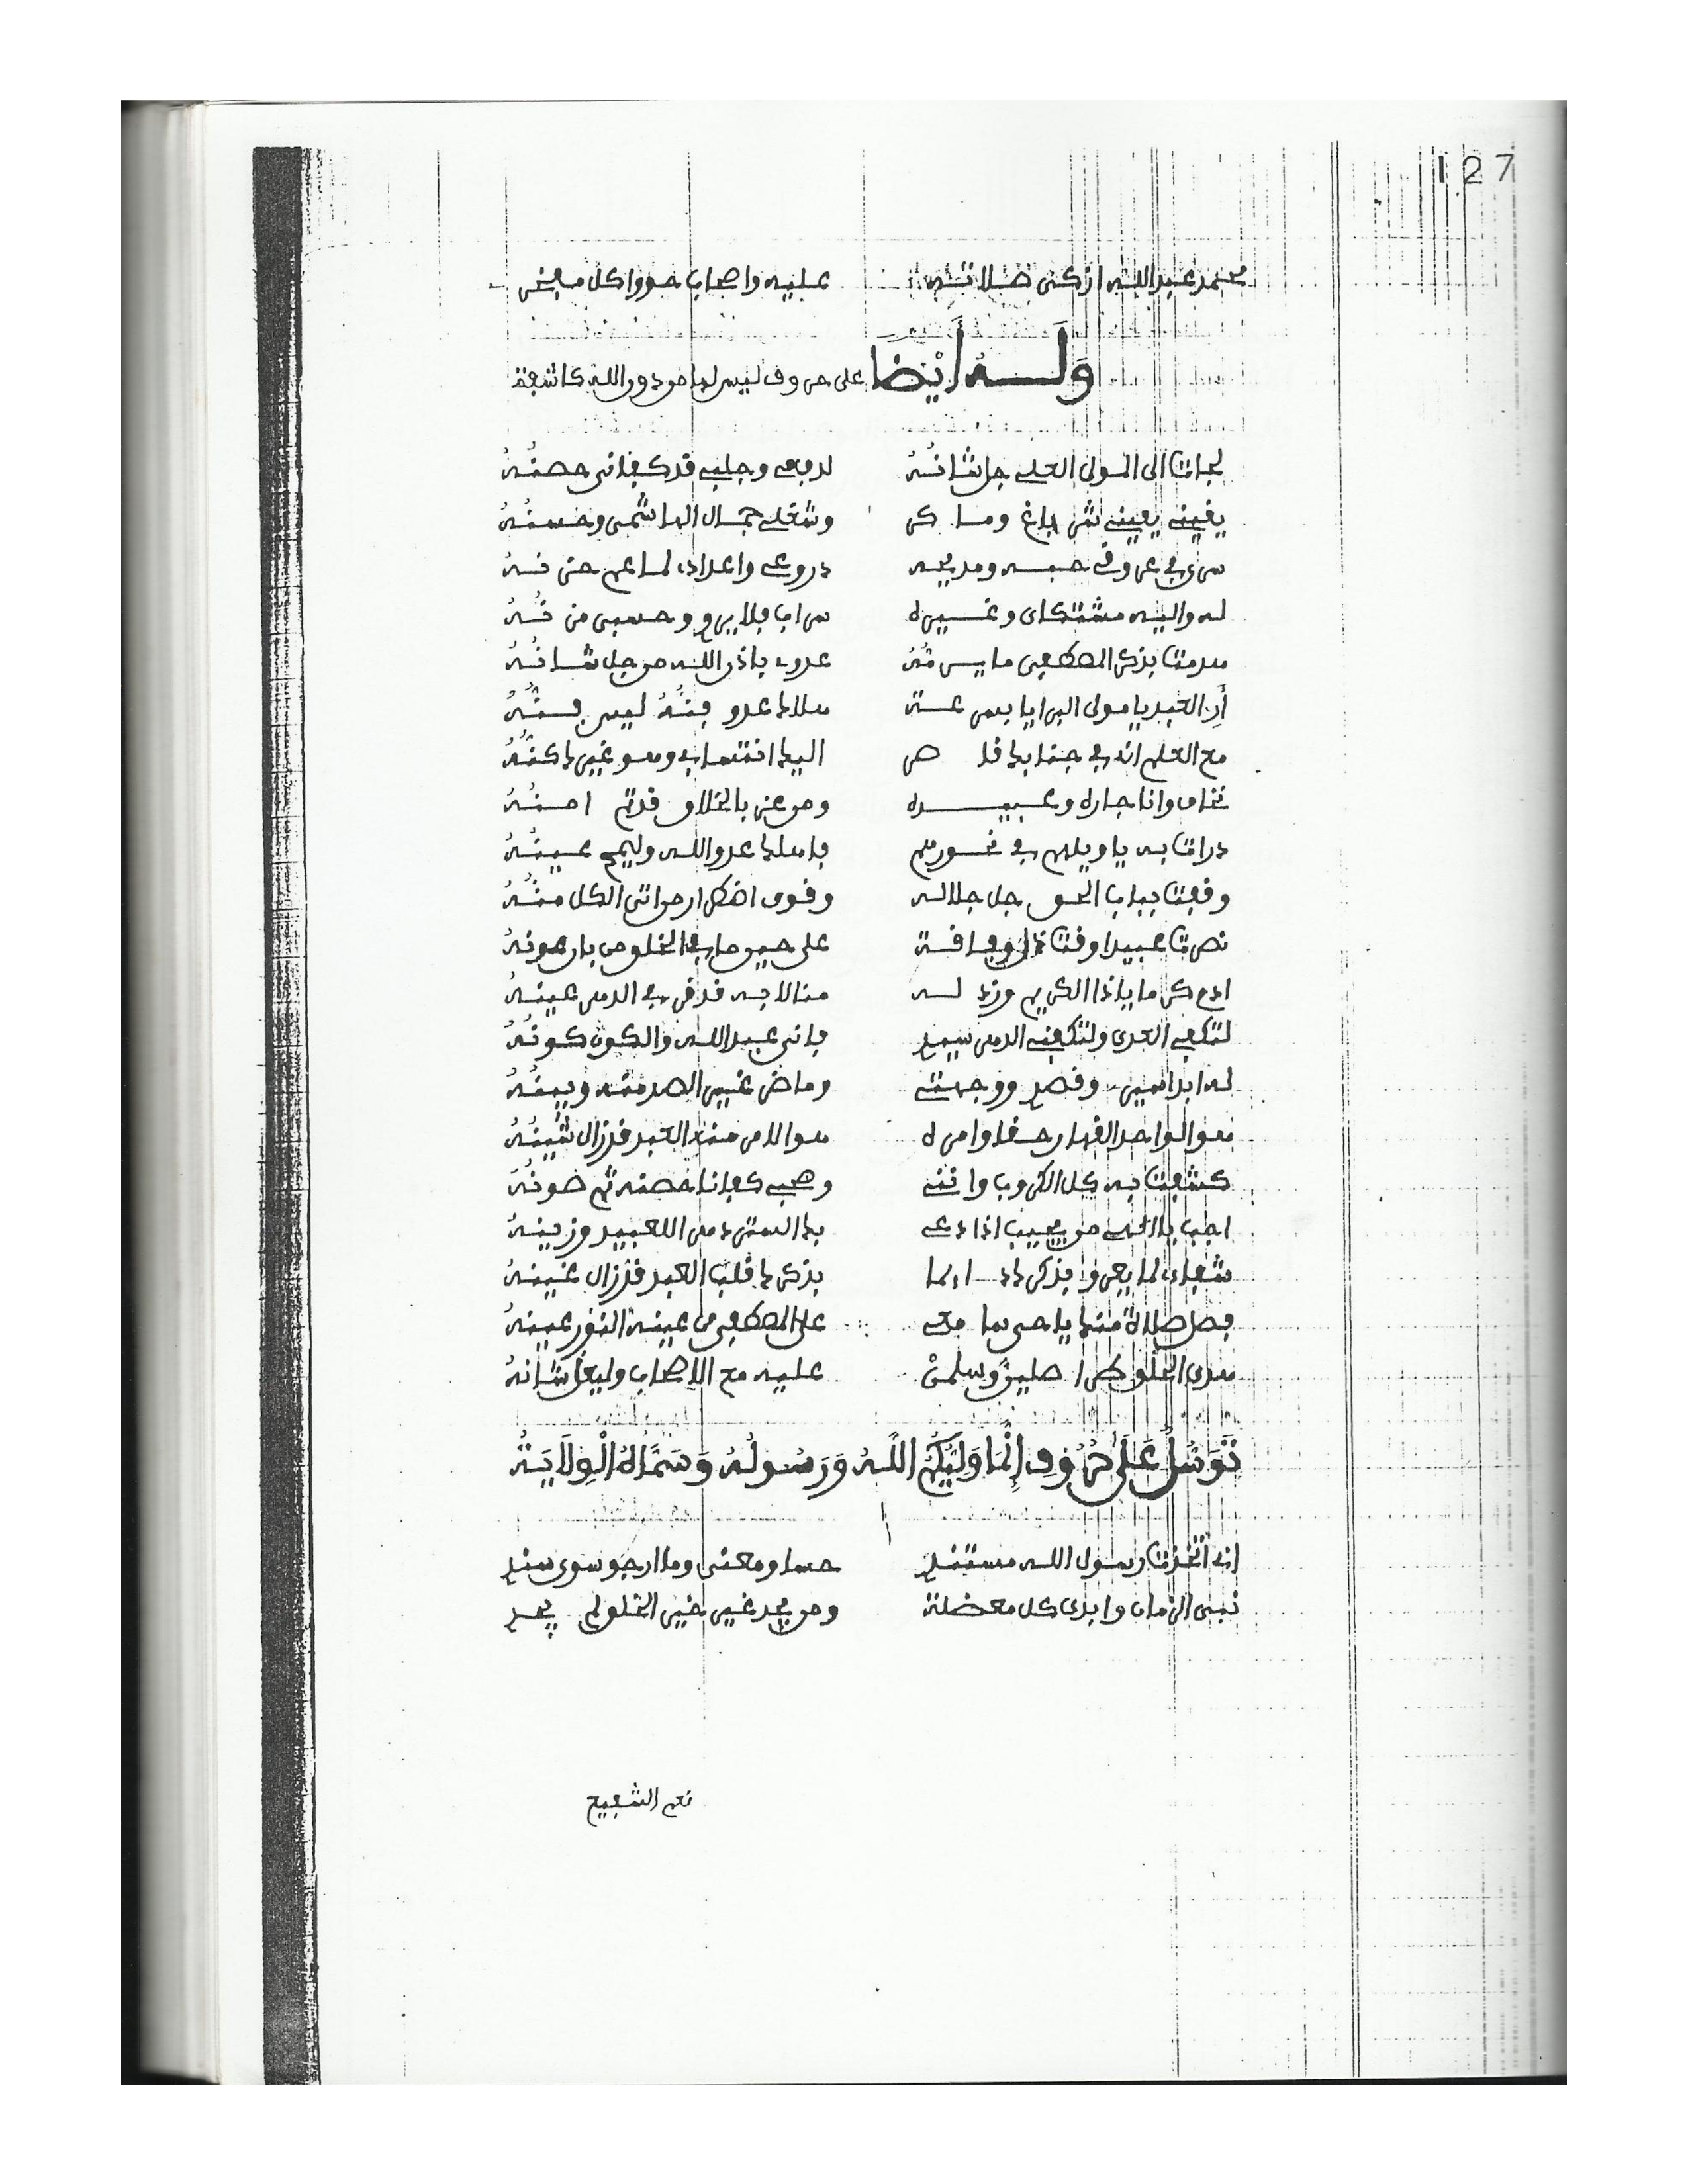 127
محمد عبد الله ازكى صلاته عليه واصحاب حووا كل مفخر
وَلَهُ أَيْضًا على حروف ليس لها من دون الله كاشفة
لجات الى المولى العلي جل شانُهُ لدفعي وجلبي قد كفاني حصنُهُ
يقيني يقيني شر باغ وماكر وشغلي جمال الهاشمي وحسنُهُ
سرى في عروقي حبه ومديحه دروعي واعدادي لما عم حزنه
له واليه مشتكاي وغيره سراب فلا يرو وحسبي مزنُهُ
هدمت بذكر المصطفى ما يسرهُ عدوي باذن الله من جل شانُهُ
أرِ العبد يا مولى البرايا بهى عزة هلاك عدو فنُّهُ ليس فنُّهُ
مع العلم اني في جنابك قاصر اليك انتسابي وهو غيرك كنُّهُ
نخاف وانا جاره وعبيده ومن عز بالخلاق قد تم امنُهُ
درات به يا ويلهم في نحورهم فاهلك عدو الله وليمح عينُهُ
وقفت بباب الحق جل جلاله وقوى افكار من اتى الكل منُّهُ
نصرت عبيدا وقت ذل وفاقة على حين حارب الخلق من بان عونهُ
ادم كرما ياذا الكريم وزد له منالا به قد قر في الدهر عينهُ
لتكفي العدى ولتكفني الدهر سيدي فاني عبد الله والكون كونُهُ
له ابدا سيري وقصدي ووجهتي وما ضر غيري الصد منه وبينُهُ
هو الواحد القهار حقا وامره هو الامر منه العبد قد زال شينُهُ
كشفت به كل الكروب وانني وصحبي كفانا حصنه ثم صونُهَ
اجب يا الهي من يجيب اذا دعي بك الستر دهر اللعبيد وزينهُ
شفائي لما يعرو بذكرك دائما بذكرك قلب العبد قد زال غينهُ
فصل صلاة منك ياحي بها معي على المصطفى من عينه النور عينهُ
هدى الخلق طرا صلين وسلمنْ عليه مع الاصحاب وليعل شانهُ
تَوَسُّلٌ عَلَىٰ حُرُوفِ إِنَّمَا وَلِيُّكُمُ اللَّهُ وَرَسُولُهُ وَسَمَّاهُ الْوِلَايَةُ
اني اتخذت رسول الله مستندي حسا ومعنى وما ارجو سوى سندي
نبي الزمان وابدى كل معضلة ومن يجد غير خير الخلق لم يجد
نعم الشفيع